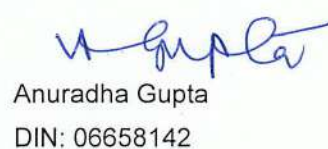 A Gupta
Anuradha Gupta
DIN: 06658142